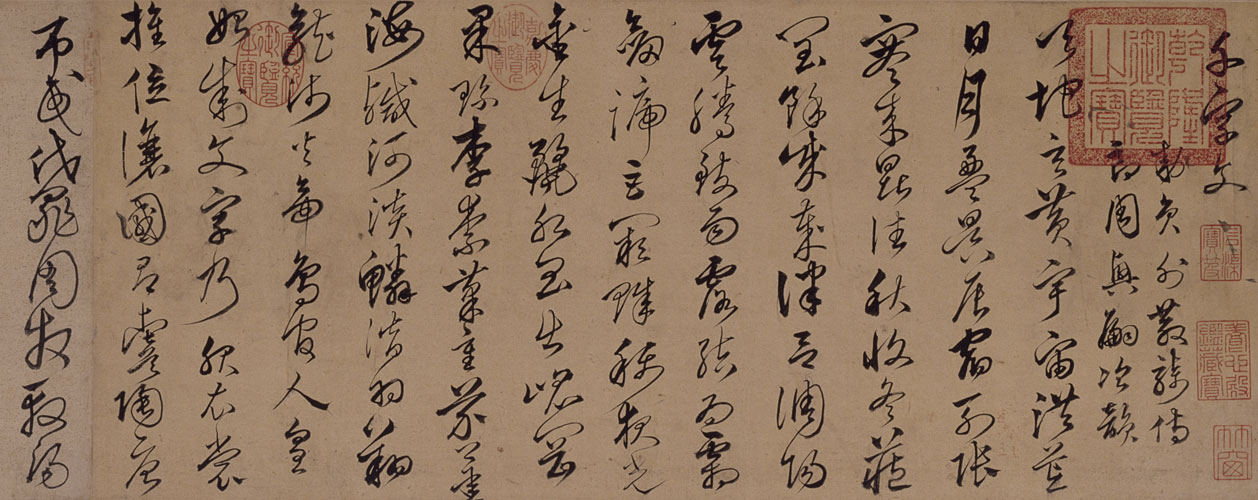 千字文
勅員外散騎侍
郎周興嗣次韻
天地玄黃宇宙洪荒
日月盈昃辰宿列張
寒來暑往秋收冬藏
閏餘成歲律呂調陽
雲騰致雨露結為霜
劍號巨闕珠稱夜光
金生麗水玉出崐岡
果珍李柰菜重芥薑
海鹹河淡鱗潛羽翔
龍師火帝鳥官人皇
始制文字乃服衣裳
推位讓國有虞陶唐
弔民伐罪周發殷湯
乾隆御覽之寶
石渠寶笈
養心殿鑑藏寶
嘉慶御覽之寶
宣統御覽之寶